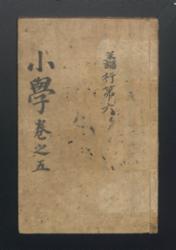 小學 卷之五
善行第六